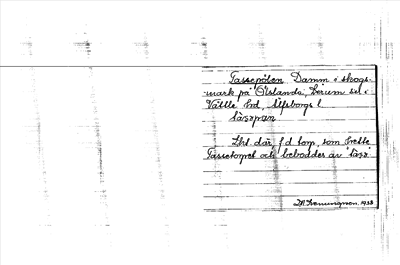 Tassepölen Damm å skogs-
mark på Öislanda, Lerum sn i
Vättle hd, Älfsborgs l.
tàsəpœn
Lhl. där f d torp, som hette
Tassetorpet och beboddes av "Tass"
1938